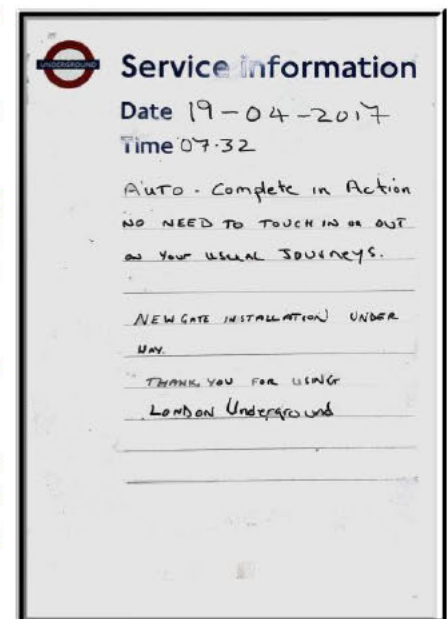 UNDERGROUND
Service information
Date 19-04-2017
Time 07.32
AUTO - Complete in Action
NO NEED TO TOUCH IN OR OUT
on Your USUAL JOURNEYS.
NEW GATE INSTALLATION UNDER
WAY.
THANK YOU FOR USING
LONDON Underground